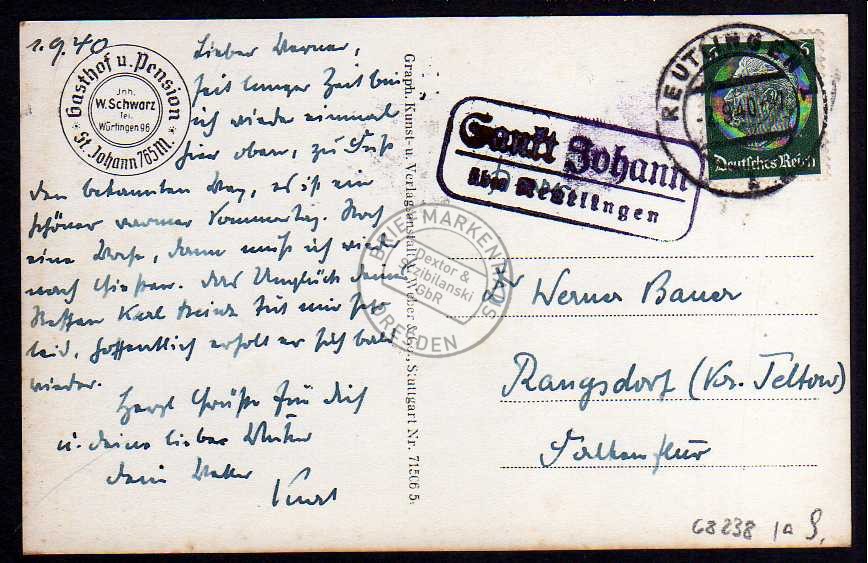 1.9.40
Gasthof u. Pension
Jnh.
W. Schwarz
Tel.
Würtingen 96
St. Johann 765 m.
Lieber Werner,
seit langer Zeit bin
ich wieder einmal
hier oben, zu Fuß
den bekannten Weg, es ist ein
schöner warmer Sommertag. Noch
eine Woche, dann muß ich wieder
nach Gießen. Das Unglück deines
Neffen Karl Heinz tut mir sehr
leid, hoffentlich erholt er sich bald
wieder.
Herzl Grüße für dich
u. deine liebe Mutter
dein Vetter
Kurt
Graph. Kunst- u. Verlagsanstalt A. Weber & Co., Stuttgart Nr. 71506 5.
REUTLINGEN 1
Deutsches Reich
Sankt Johann
über Reutlingen
BRIEFMARKENHAUS
Dextor &
Szibilanski
GbR
DRESDEN
Werner Bauer
Rangsdorf (Kr. Teltow)
Falkenflur
68238 1a